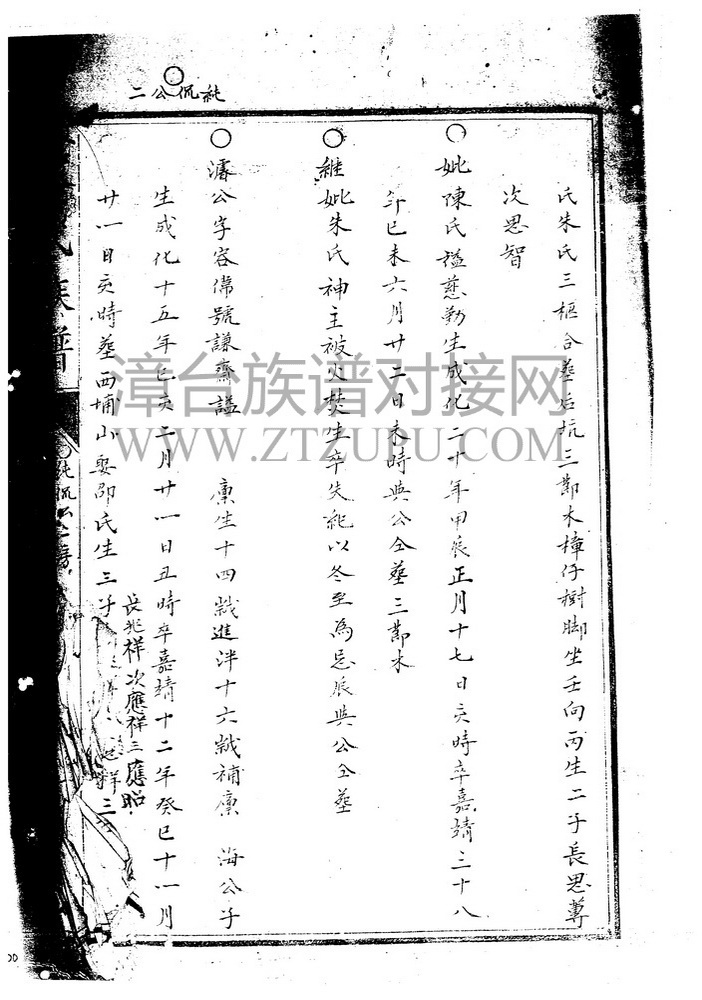 二公侃純
氏朱氏三柩合塟后坑三節木樟仔樹脚坐壬向丙生二子長思
次思智
妣陳氏謚慈勤生成化二十年甲辰正月十七日亥時卒嘉靖三十八
年已未六月廿二日未時與公仝塟三節木
継妣朱氏神主被火焚生卒失紀以冬至為忌辰與公仝塟
濬公字容偉號謙齋謚 廪生十四歲進泮十六歲補廪 海公子
生成化十五年已亥二月廿一日丑時卒嘉靖十二年癸巳十一月
廿一日亥時塟西埔山娶邵氏生三子
長兆祥次應祥三應昭
氏族譜
純侃公
漳台族谱对接网
WWW.ZTZUPU.COM